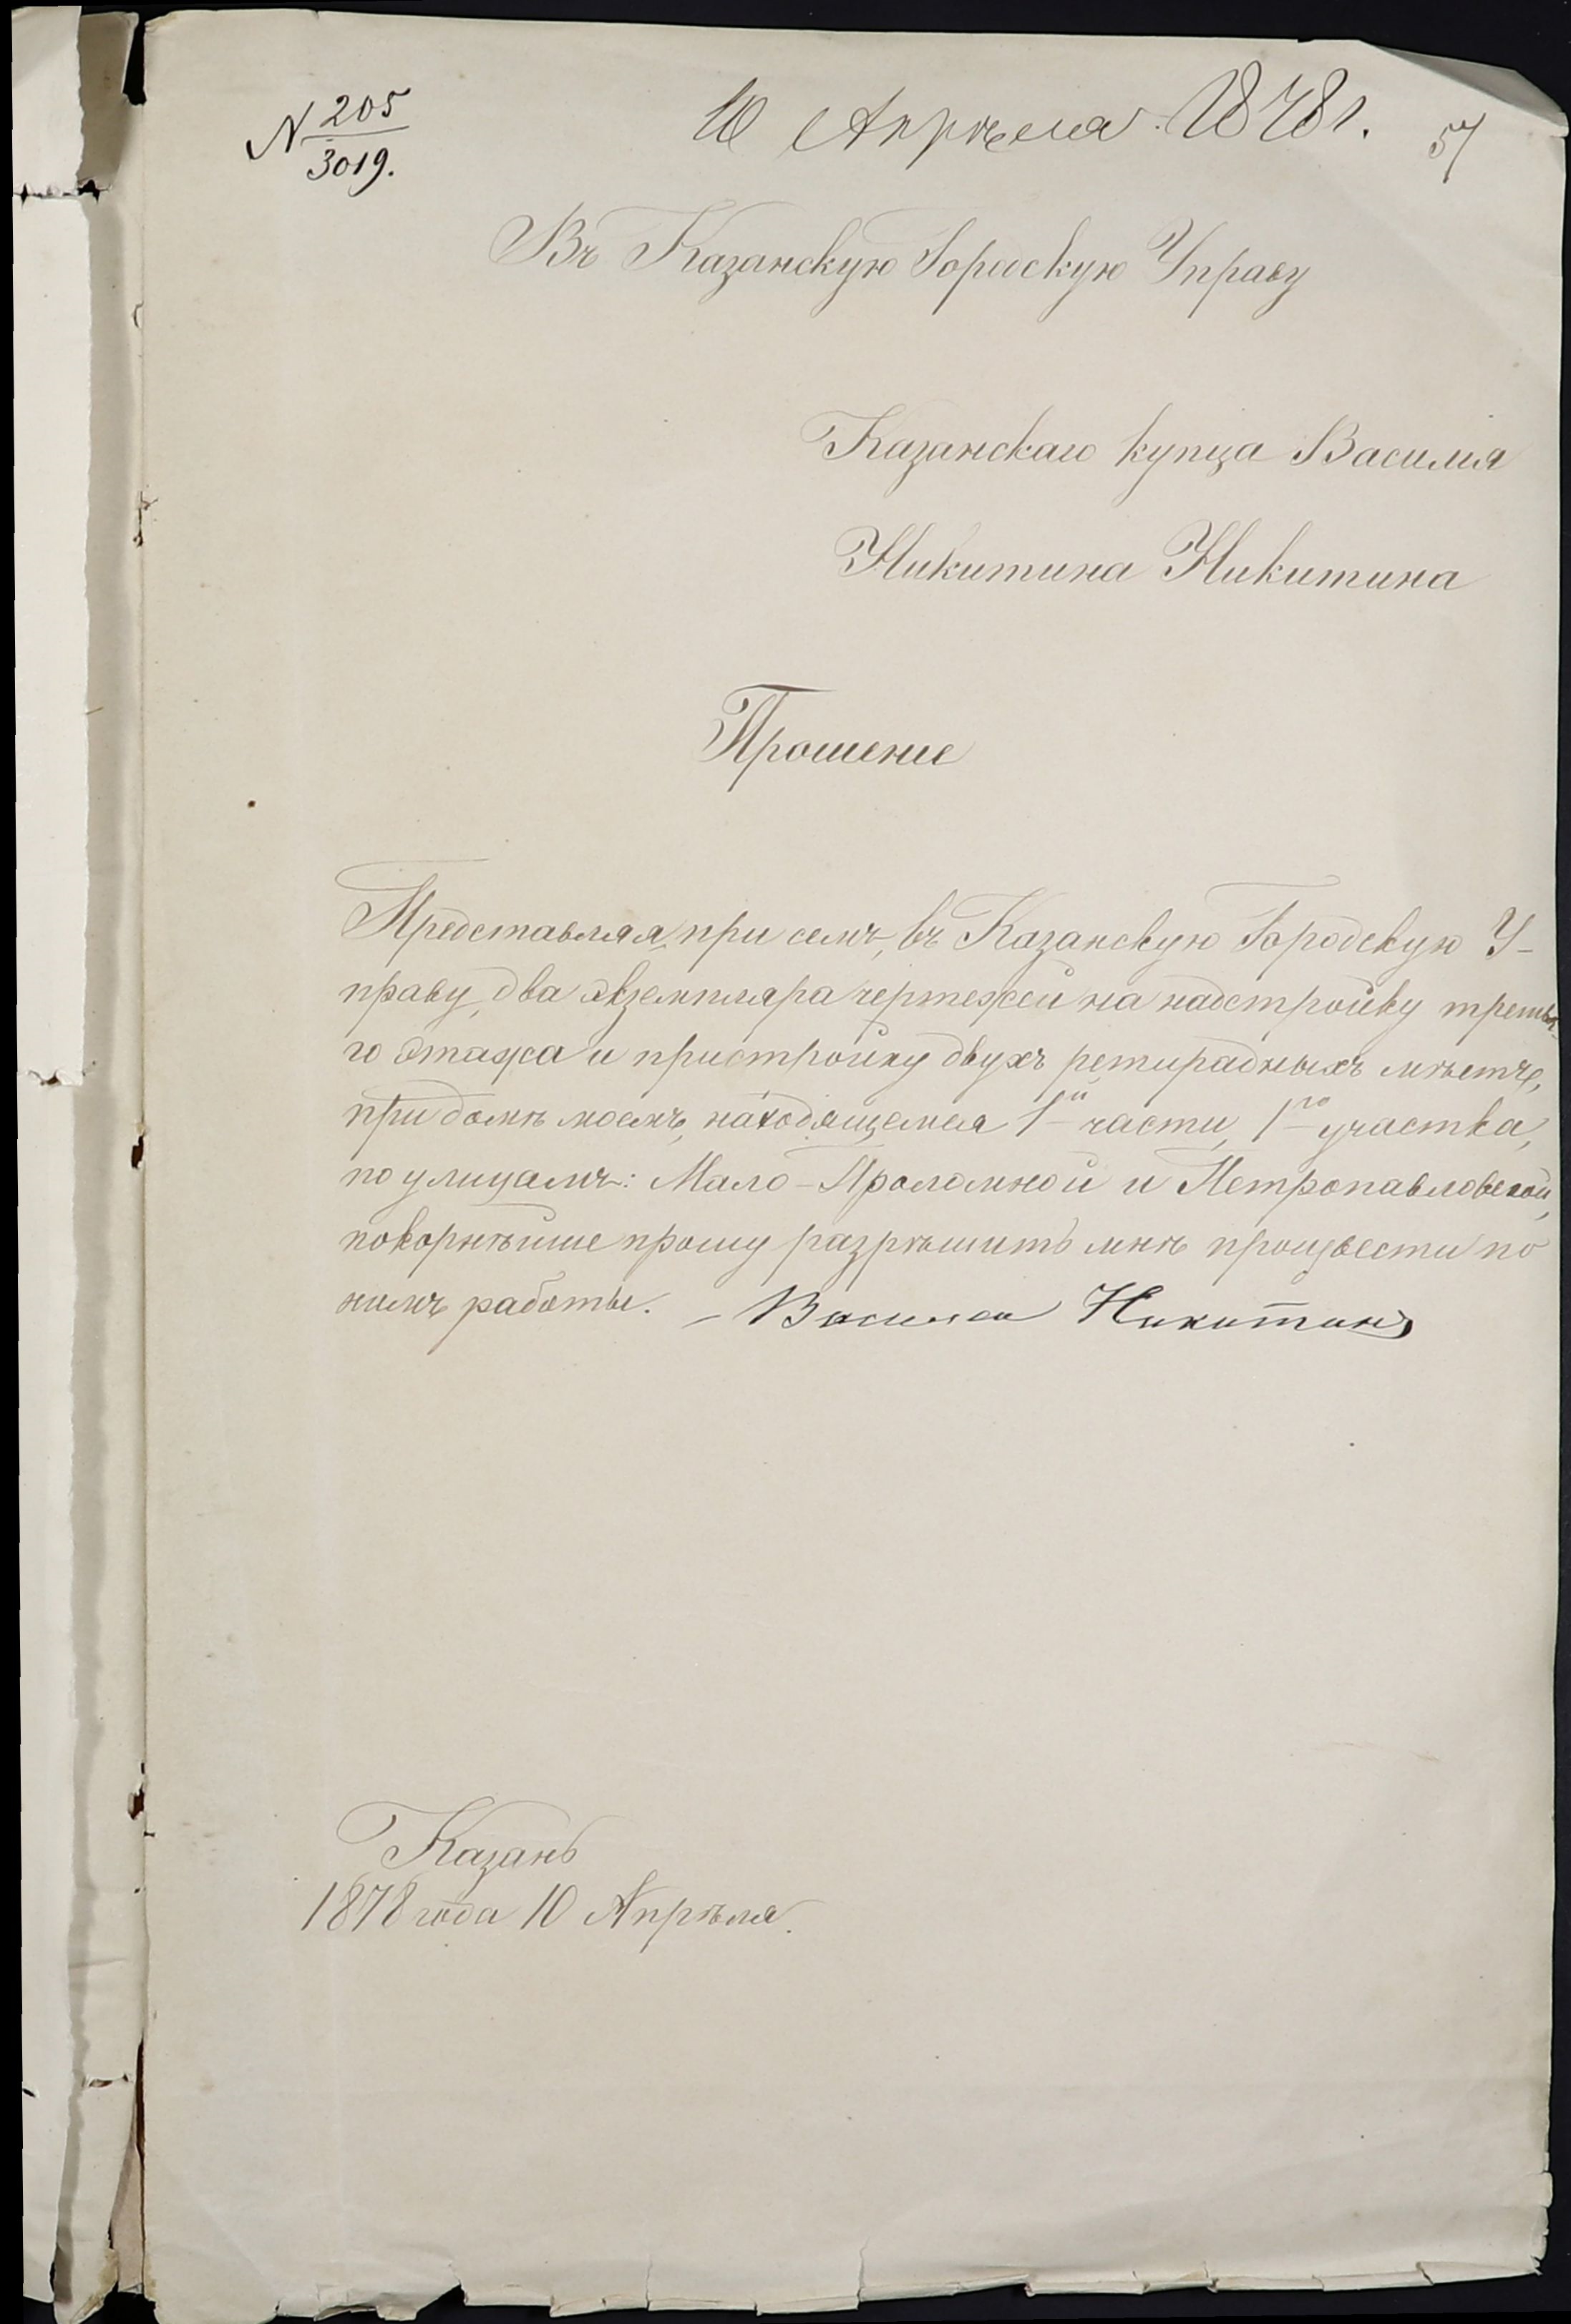 № 205
3019.
10 Апрѣля 1878 г.
57
Въ Казанскую Городскую Управу
Казанскаго купца Василия
Никитина Никитина
Прошение
Представляя при семъ, въ Казанскую Городскую У-
праву, два экземпляра чертежей на надстройку третья-
го этажа и пристройку двухъ ретирадныхъ мѣстъ,
при домѣ моемъ, находящемся 1й части, 1го участка,
по улицамъ: Мало-Проломной и Петропавловской,
покорнѣйше прошу разрѣшить мнѣ произвести по
нимъ работы. - Василей Никитинъ
Казань
1878 года 10 Апрѣля.